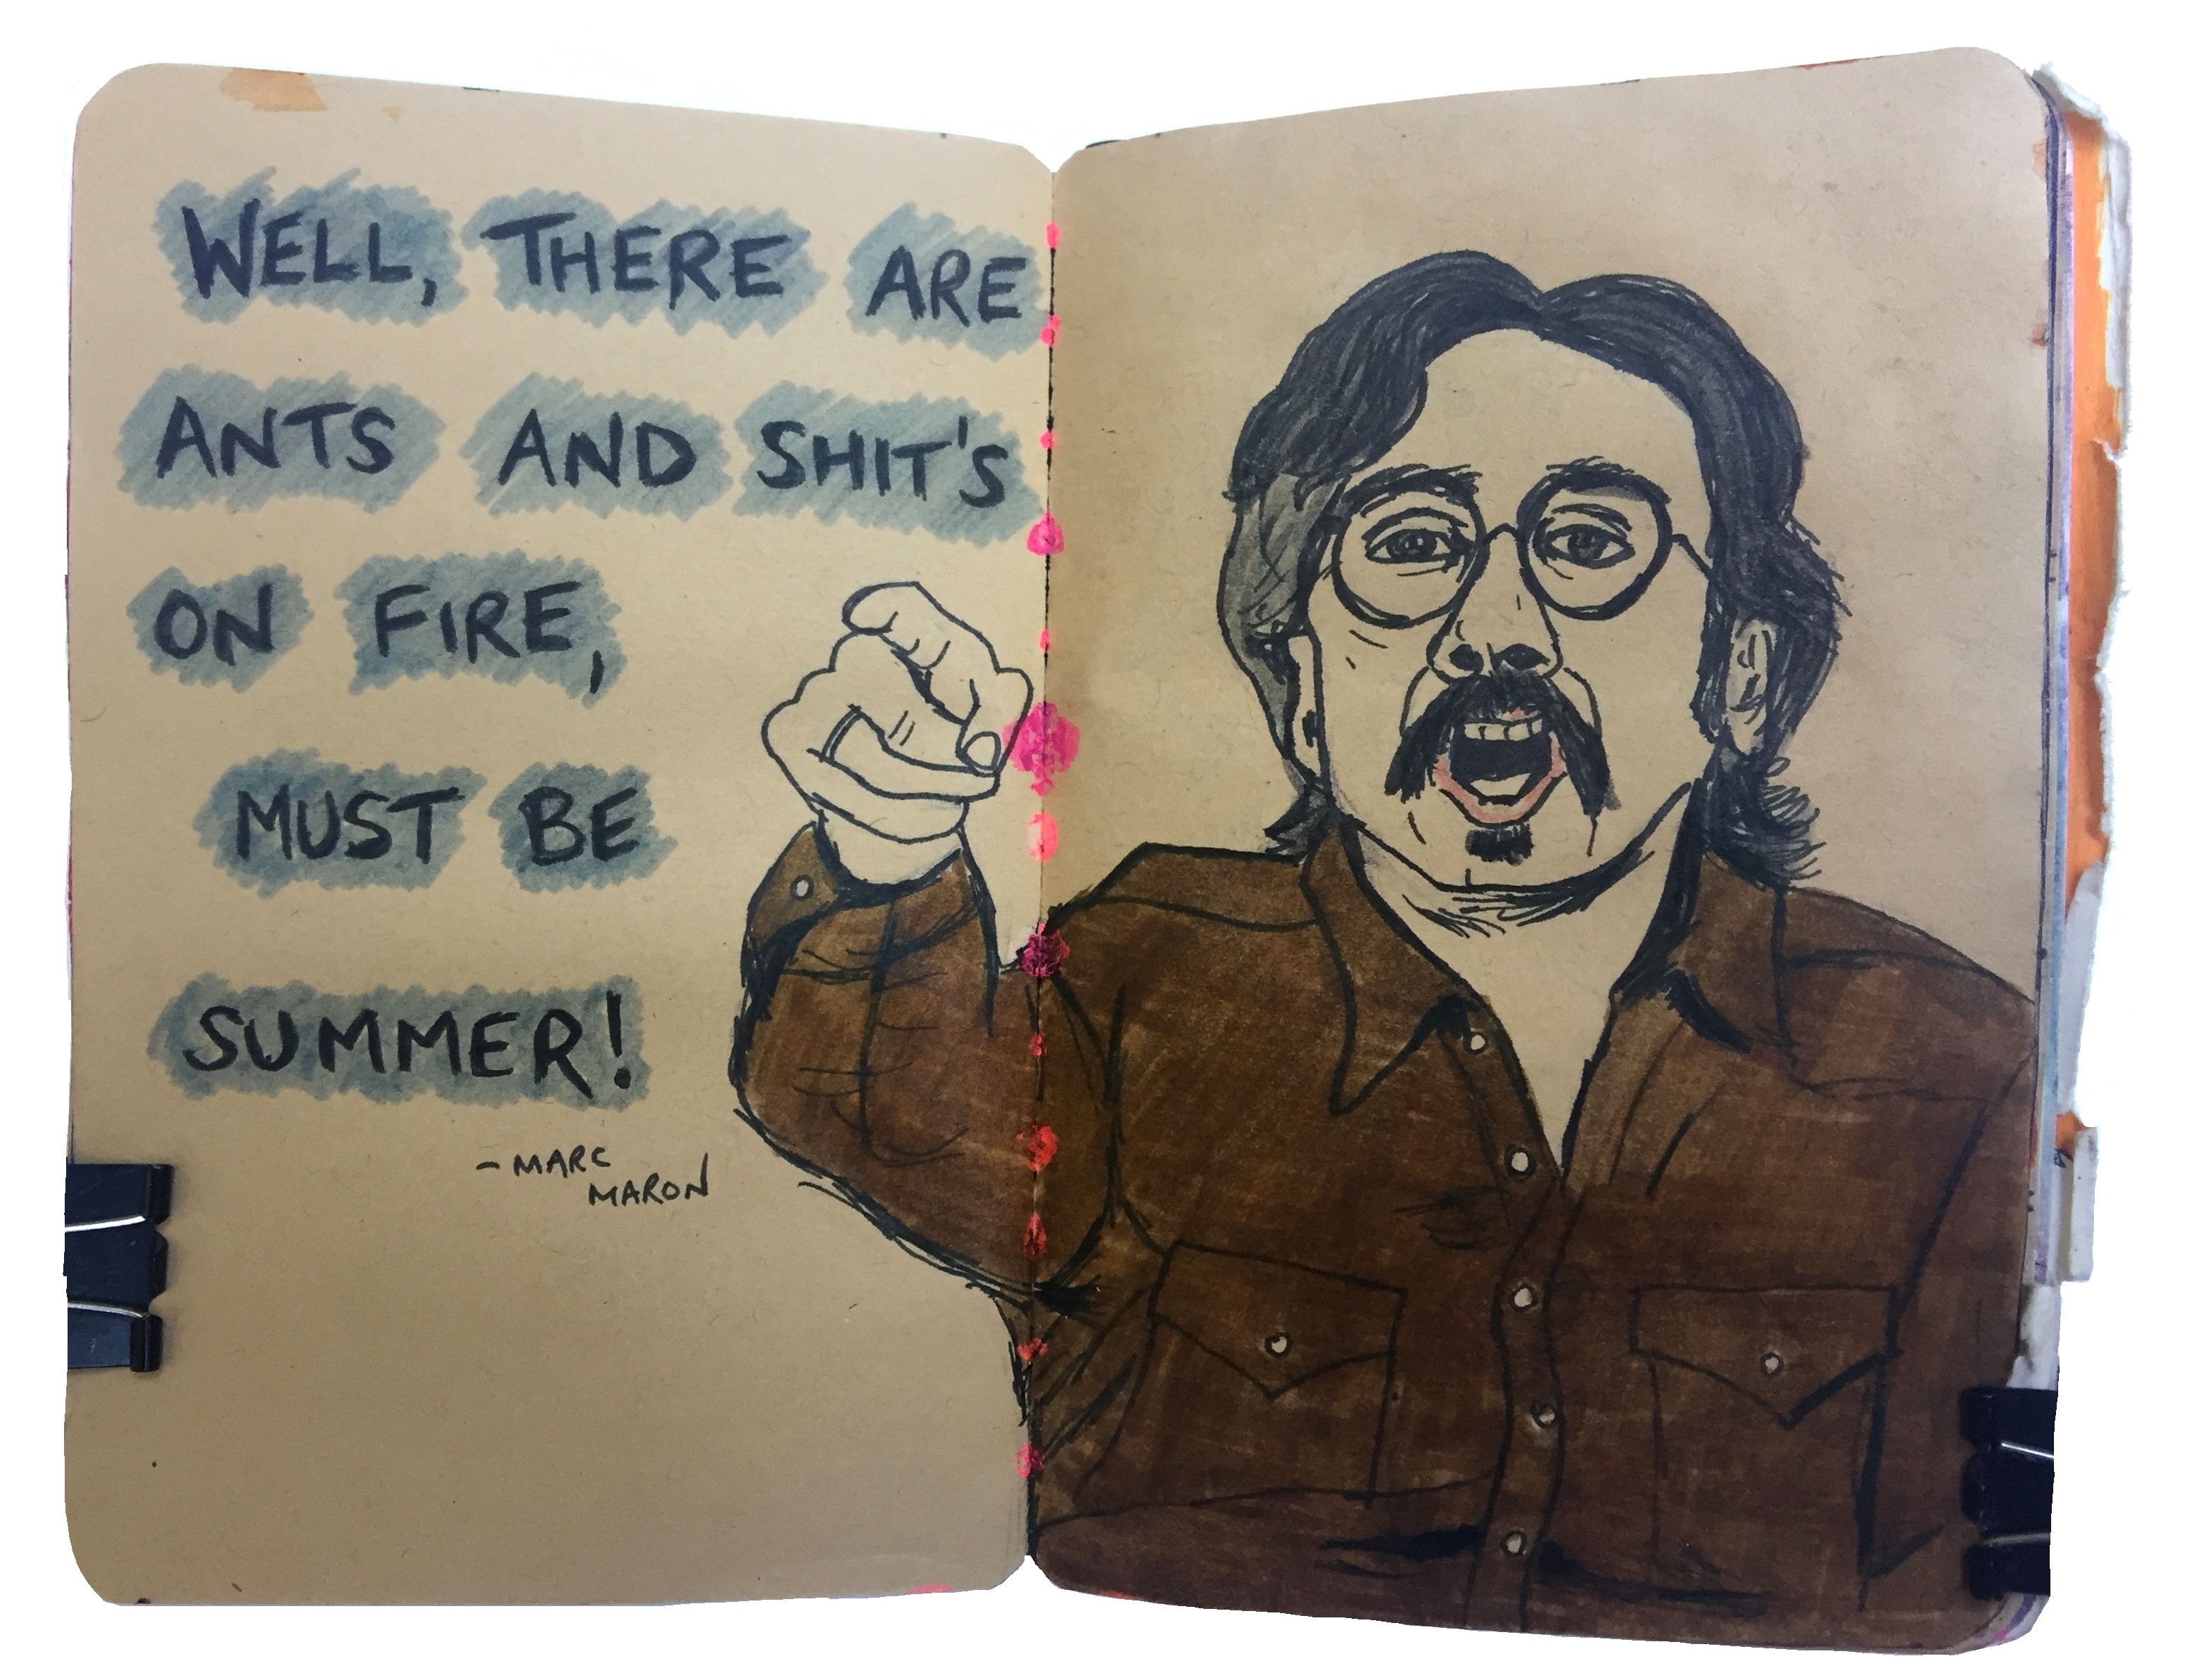 WELL, THERE ARE
ANTS AND SHIT'S
ON FIRE,
MUST BE
SUMMER!
- MARC
MARON